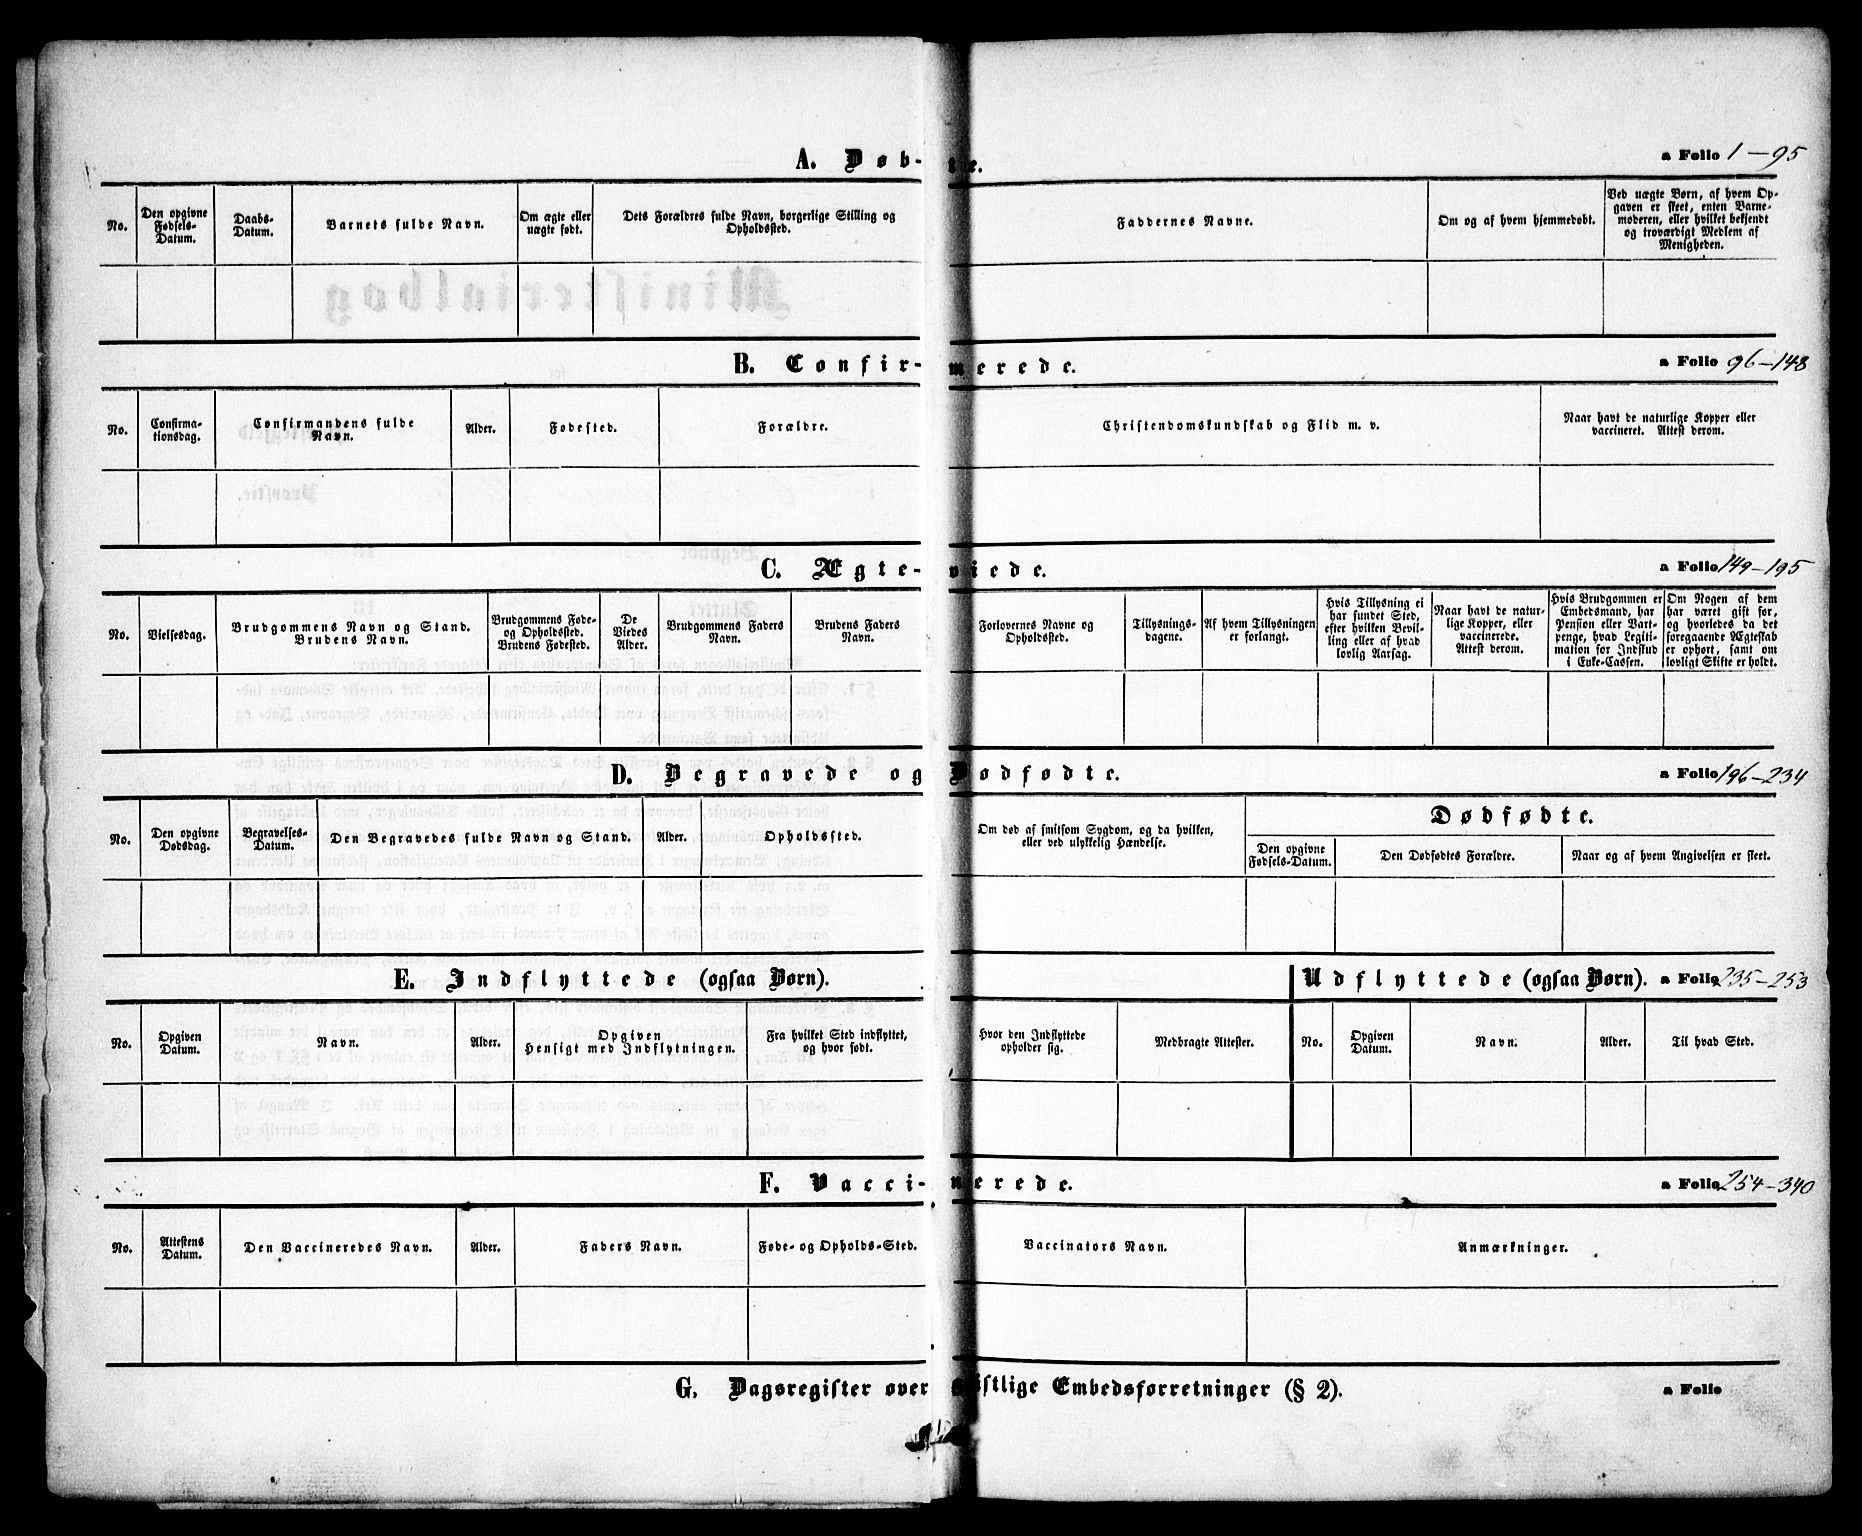 A. Døb-te. a Folio 1-95
No.
Den opgivne Fødsels-Datum.
Daabs-Datum.
Barnets fulde Navn.
Om ægte eller uægte født.
Dets Forældres fulde Navn, borgerlige Stilling og Opholdssted.
Faddernes Navne.
Om og af hvem hjemmedøbt.
Ved uægte Børn, af hvem Opgaven er skeet, enten Barnemoderen, eller hvilket bekjendt og troværdigt Medlem af Menigheden.
B. Confir-merede. a Folio 96-148
No.
Confirma-tionsdag.
Confirmandens fulde Navn.
Alder.
Fødested.
Forældre.
Christendomskundskab og Flid m. v.
Naar havt de naturlige Kopper eller vaccineret. Attest derom.
C. Ægte-viede. a Folio 149-195
No.
Vielsesdag.
Brudgommens Navn og Stand. Brudens Navn.
Brudgommens Føde- og Opholdssted. Brudens Fødested.
De Viedes Alder.
Brudgommens Faders Navn.
Brudens Faders Navn.
Forlovernes Navne og Opholdssted.
Tillysnings-dagene.
Af hvem Tillysningen er forlangt.
Hvis Tillysning ei har fundet Sted, efter hvilken Bevilling eller af hvad lovlig Aarsag.
Naar havt de naturlige Kopper, eller vaccinerede. Attest derom.
Hvis Brudgommen er Embedsmand, har Pension eller Vartpenge, hvad Legitimation for Indskud i Enke-Cassen.
Om Nogen af dem har været gift før, og hvorledes da det foregaaende Ægteskab er ophørt, samt om lovligt Skifte er holdt.
D. Begravede og Dødfødte. a Folio 196-234
No.
Den opgivne Dødsdag.
Begravelses-Datum.
Den Begravedes fulde Navn og Stand.
Alder.
Opholdssted.
Om død af smitsom Sygdom, og da hvilken, eller ved ulykkelig Hændelse.
Dødfødte.
Den opgivne Fødsels-Datum.
Den Dødfødtes Forældre.
Naar og af hvem Angivelsen er skeet.
E. Indflyttede (ogsaa Børn). Udflyttede (ogsaa Børn). a Folio 235-253
No.
Opgiven Datum.
Navn.
Alder.
Opgiven Hensigt med Indflytningen.
Fra hvilket Sted indflyttet, og hvor født.
Hvor den Indflyttede opholder sig.
Medbragte Attester.
No.
Opgiven Datum.
Navn.
Alder.
Til hvad Sted.
F. Vacci-nerede. a Folio 254-340
No.
Attestens Datum.
Den Vaccineredes Navn.
Alder.
Faders Navn.
Føde- og Opholds-Sted.
Vaccinators Navn.
Anmærkninger.
G. Dagsregister over geistlige Embedsforretninger (§ 2). a Folio